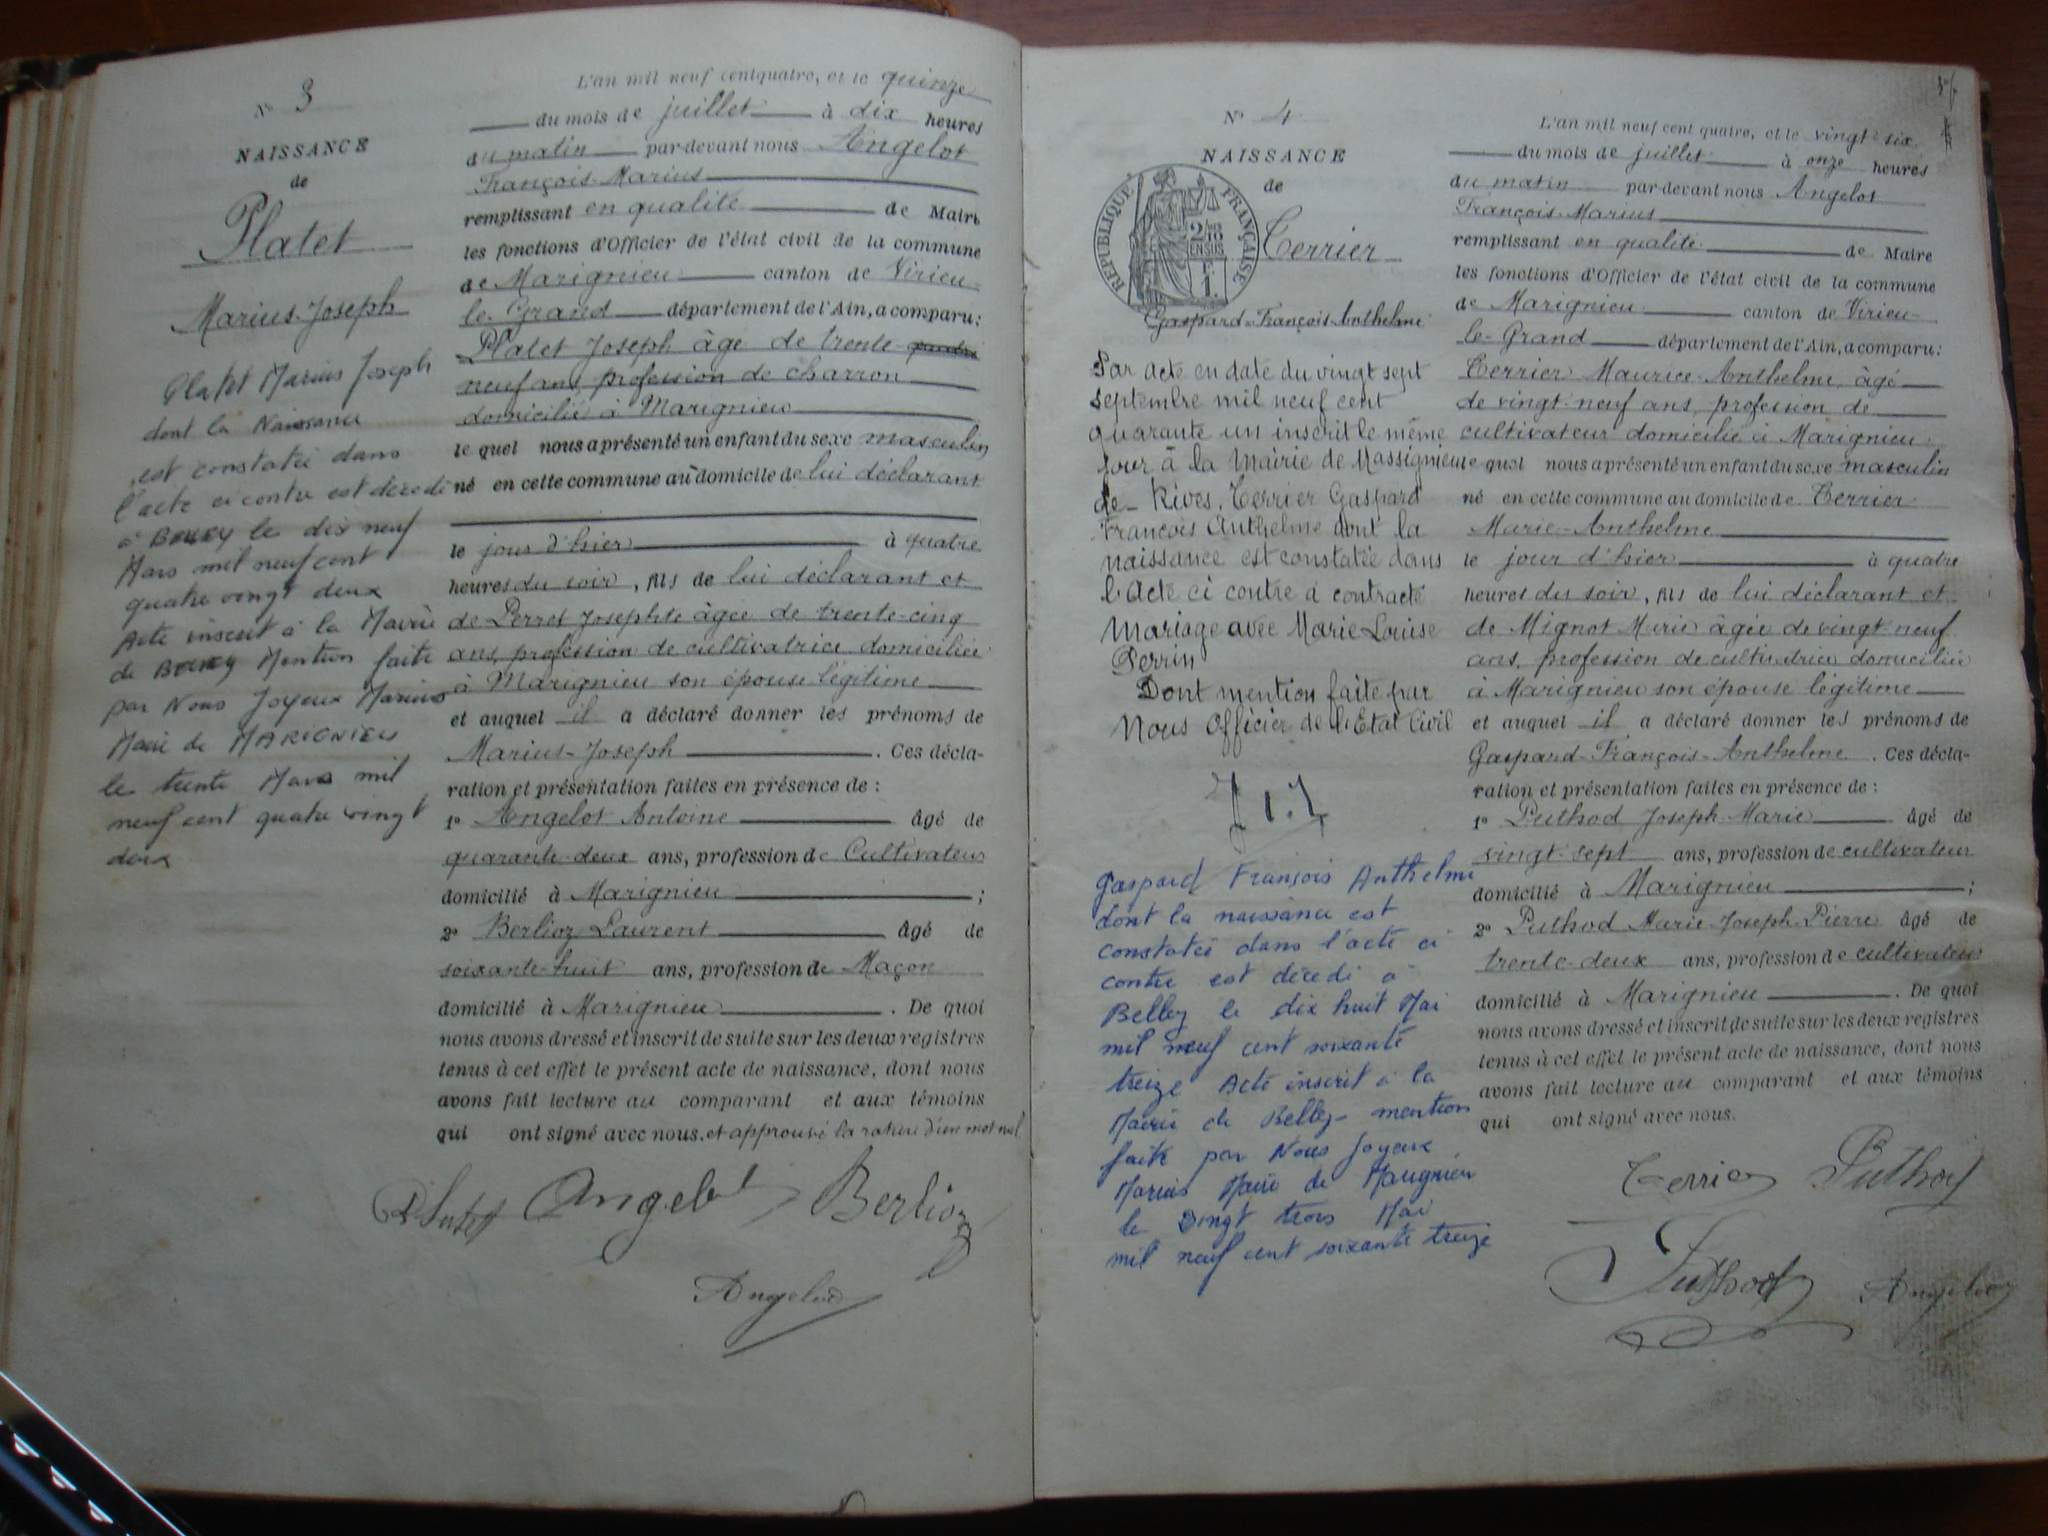 N° 3
NAISSANCE
de
Platet
Marius-Joseph
Platet Marius Joseph
dont la Naissance
est constatée dans
l'acte ci contre est décédé
à BELLEY le dix neuf
Mars mil neuf cent
quatre vingt deux
Acte inscrit à la Mairie
de BELLEY Mention faite
par Nous Joyeux Marius
Maire de MARIGNIEU
le trente Mars mil
neuf cent quatre vingt
deux
L'an mil neuf cent quatre, et le quinze
du mois de juillet à dix heures
du matin par-devant nous Angelot
François-Marius
remplissant en qualité de Maire
les fonctions d'Officier de l'état civil de la commune
de Marignieu canton de Virieu-
le-Grand département de l'Ain, a comparu:
Platet Joseph âgé de trente-
neuf ans, profession de charron
domicilié à Marignieu
le quel nous a présenté un enfant du sexe masculin
né en cette commune au domicile de lui déclarant
le jour d'hier à quatre
heures du soir, fils de lui déclarant et
de Perret Josephte âgée de trente-cinq
ans, profession de cultivatrice domiciliée
à Marignieu son épouse légitime
et auquel il a déclaré donner les prénoms de
Marius-Joseph. Ces décla-
ration et présentation faites en présence de :
1° Angelot Antoine âgé de
quarante-deux ans, profession de Cultivateur
domicilié à Marignieu ;
2° Berlioz Laurent âgé de
soixante-huit ans, profession de Maçon
domicilié à Marignieu. De quoi
nous avons dressé et inscrit de suite sur les deux registres
tenus à cet effet le présent acte de naissance, dont nous
avons fait lecture au comparant et aux témoins
qui ont signé avec nous. et approuvé la rature d'un mot nul
Platet Angelot Berlioz
Angelot
N° 4
NAISSANCE
de
RÉPUBLIQUE FRANÇAISE
2/10
EN SUS
1 F.
Terrier
Gaspard-François-Anthelme
Par acte en date du vingt sept
septembre mil neuf cent
quarante un inscrit le même
jour à la Mairie de Massignieu
de Rives, Terrier Gaspard
François Anthelme dont la
naissance est constatée dans
l'Acte ci contre a contracté
Mariage avec Marie Louise
Perrin
Dont mention faite par
Nous Officier de l'Etat Civil
Gaspard François Anthelme
dont la naissance est
constatée dans l'acte ci
contre est décédé à
Belley le dix huit Mai
mil neuf cent soixante
treize Acte inscrit à la
Mairie de Belley - mention
faite par Nous Joyeux
Marius Maire de Marignieu
le vingt trois Mai
mil neuf cent soixante treize
L'an mil neuf cent quatre, et le vingt-six
du mois de juillet à onze heures
du matin par-devant nous Angelot
François-Marius
remplissant en qualité de Maire
les fonctions d'Officier de l'état civil de la commune
de Marignieu canton de Virieu-
le-Grand département de l'Ain, a comparu:
Terrier Maurice-Anthelme, âgé
de vingt-neuf ans, profession de
cultivateur domicilié à Marignieu
le quel nous a présenté un enfant du sexe masculin
né en cette commune au domicile de Terrier
Marie-Anthelme
le jour d'hier à quatre
heures du soir, fils de lui déclarant et
de Mignot Marie âgée de vingt-neuf
ans, profession de cultivatrice domiciliée
à Marignieu son épouse légitime
et auquel il a déclaré donner les prénoms de
Gaspard-François-Anthelme. Ces décla-
ration et présentation faites en présence de :
1° Puthod Joseph-Marie âgé de
vingt-sept ans, profession de cultivateur
domicilié à Marignieu ;
2° Puthod Marie-Joseph-Pierre âgé de
trente-deux ans, profession de cultivateur
domicilié à Marignieu. De quoi
nous avons dressé et inscrit de suite sur les deux registres
tenus à cet effet le présent acte de naissance, dont nous
avons fait lecture au comparant et aux témoins
qui ont signé avec nous.
Terrier Puthod
Puthod Angelot